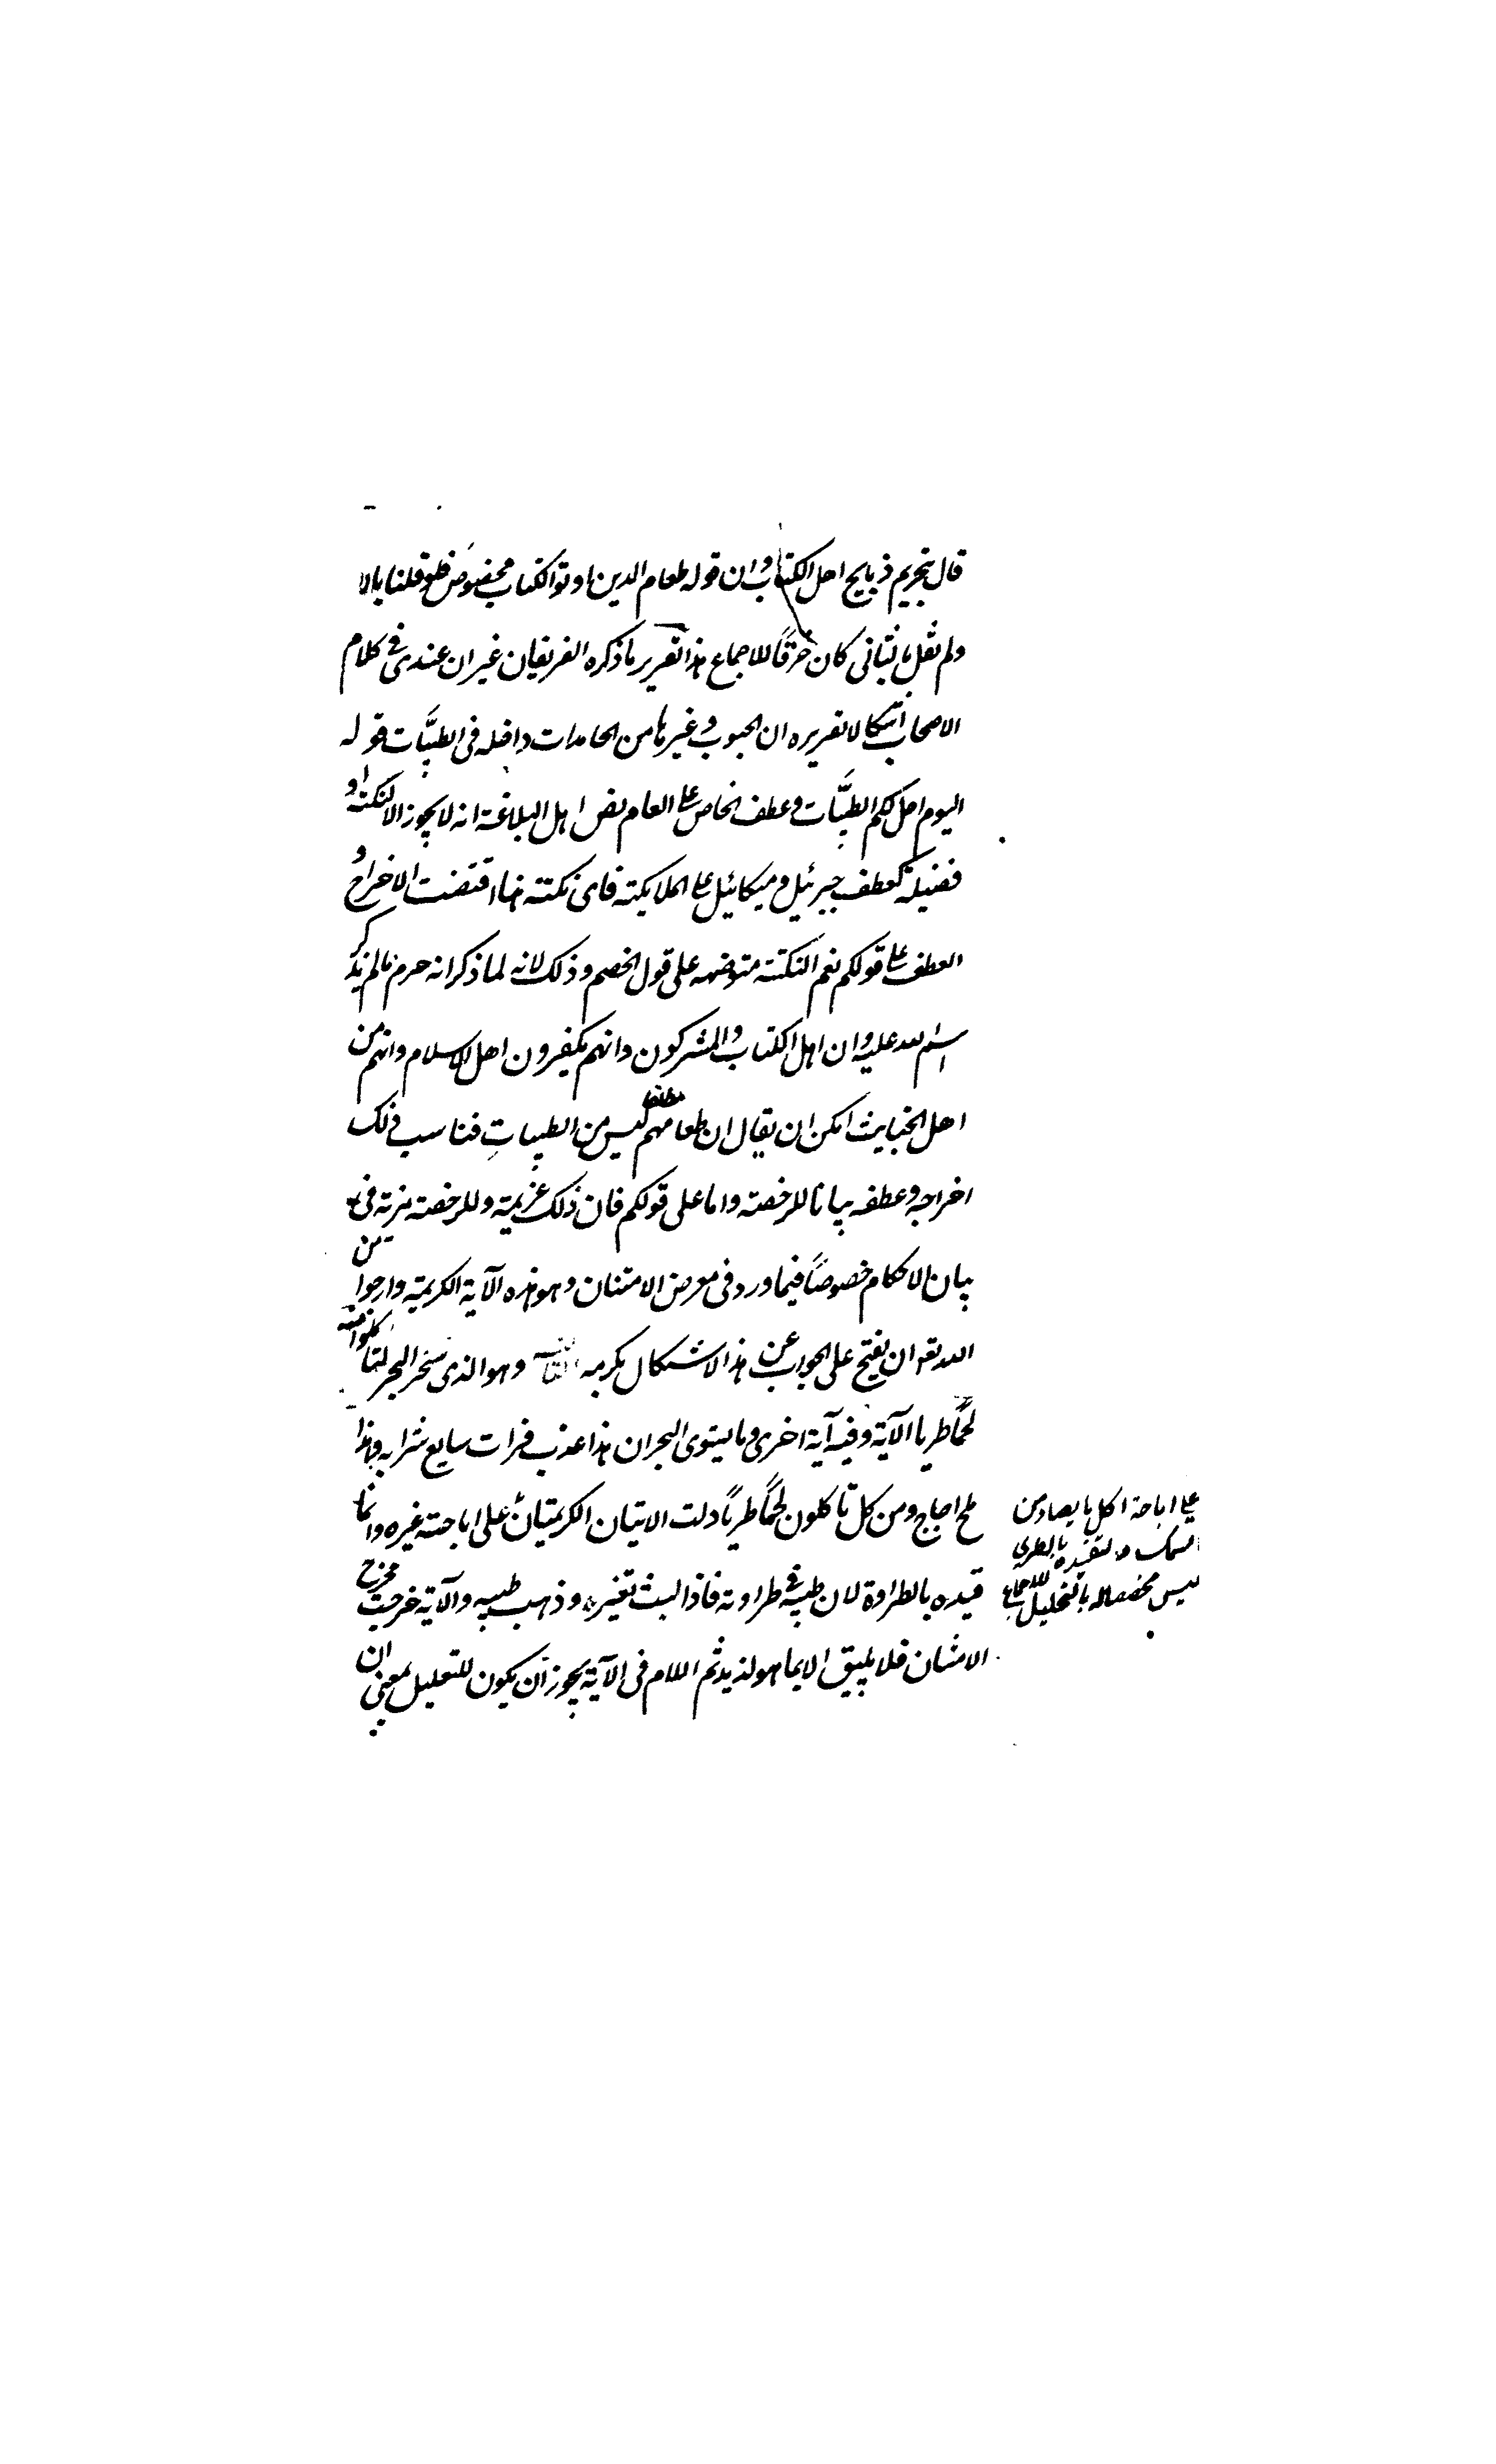 قال بتحريم ذبايح اهل الكتاب وان قوله طعام الذين اوتوا الكتاب مخصوص فلو قلنا بالا
ولم نقل بالثاني كان خرقًا للاجماع هذا تقرير ما ذكره الفريقان غير ان عندى فى كلام
الاصحاب اشكالا تقريره ان الحبوب وغيرها من الجامدات داخله فى الطيبات قوله
اليوم احل لكم الطيبات وعطف الخاص على العام نص اهل البلاغة انه لا يجوز الا لنكتة او
فضيلة كعطف جبرئيل وميكائيل على الملايكة فاى نكتة هنا اقتضت الاخراج و
العطف على قولكم نعم النكتة متوجهه على قول الخصم وذلك لانه لما ذكر انه حرم ما لم يذكر
اسم الله عليه وان اهل الكتاب والمشركون وانهم يكفرون اهل الاسلام وانهم من
اهل الخبايث امكن ان يقال ان طعامهم مطلقا ليس من الطيبات فناسب ذلك
اخراجه وعطفه بيانا للرخصة واما على قولكم فان ذلك عزيمة وللرخصة مزية فى
بيان الاحكام خصوصًا فيما ورد فى معرض الامتنان وهو هذه الآية الكريمة وارجوا من
الله تع ان يفتح على الجواب عن هذا الاشكال بكرمه وهو الذى سخر البحر لتاكلوا منه
لحمًا طريا الآية وفيه آية اخرى وما يستوى البحران هذا عذب فرات سايغ شرابه وهذا
ملح اجاج ومن كل تاكلون لحمًا طريًا دلت الايتان الكريمتان على اباحته غيره وانما
قيده بالطراوة لان طيبه فى طراوته فاذا لبث تغير وذهب طيبه والآية خرجت مخرج
الامتنان فلا يليق الا بما هو لذيذ ثم اللام فى الآية يجوز ان يكون للتعليل بمعنى ان
على اباحة اكل ما يصاد من
السمك وتقيده بالطرى
ليس مخصصا له بالتحليل للاجماع